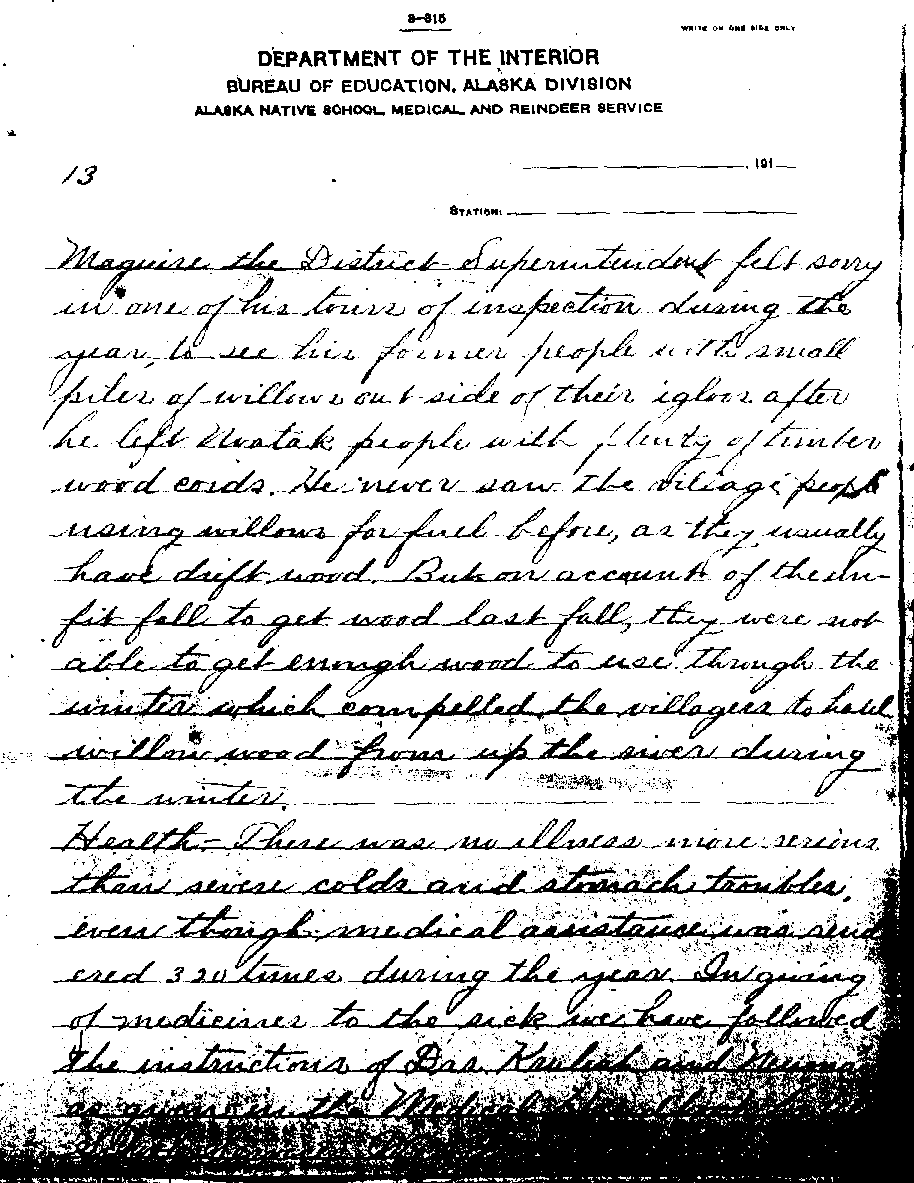 8-315
WRITE ON ONE SIDE ONLY
DEPARTMENT OF THE INTERIOR
BUREAU OF EDUCATION, ALASKA DIVISION
ALASKA NATIVE SCHOOL, MEDICAL, AND REINDEER SERVICE
13
, 191
STATION:
Maguire the District Superintendent felt sorry
in one of his tours of inspection during the
year, to see his former people with small
piles of willows out side of their igloos after
he left Noatak people with plenty of timber
wood cords. He never saw the village people
using willows for fuel before, as they usually
have drift wood. But on account of the un-
fit fall to get wood last fall, they were not
able to get enough wood to use through the
winter which compelled the villagers to haul
willow wood from up the river during
the winter.
Health - There was no illness more serious
than severe colds and stomach troubles,
even though medical assistance was rend
ered 320 times during the year. In giving
of medicines to the sick we have followed
the instructions of Drs. Krulish and
as given in the Medical